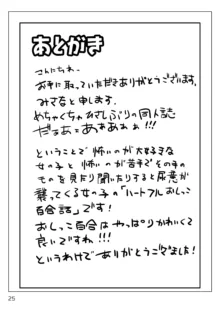 あとがき
こんにちわ。
お手に取っていただきありがとうございます。
みてなと申します。
めちゃくちゃひさしぶりの同人誌
だぁぁーあああぁぁ!!!
ということで怖いのが大好きな
女の子と怖いのが苦手でその手の
ものを見たり聞いたりすると尿意が
襲ってくる女の子の「ハートフルおしっこ
百合話」です!
おしっこ百合はやっぱりかわいくて
良いですね!!!
というわけでありがとうございました!
25